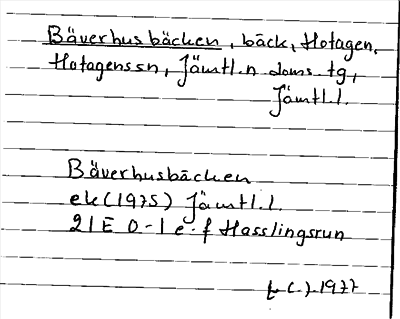 Bäverhusbäcken, bäck, Hotagen,
Hotagenssn, Jämtl.n doms.tg,
Jämtl.l.
Bäverhusbäcken
ek (1975) Jämtl.l.
21E 0-1 e-f Hasslingsrun
1977